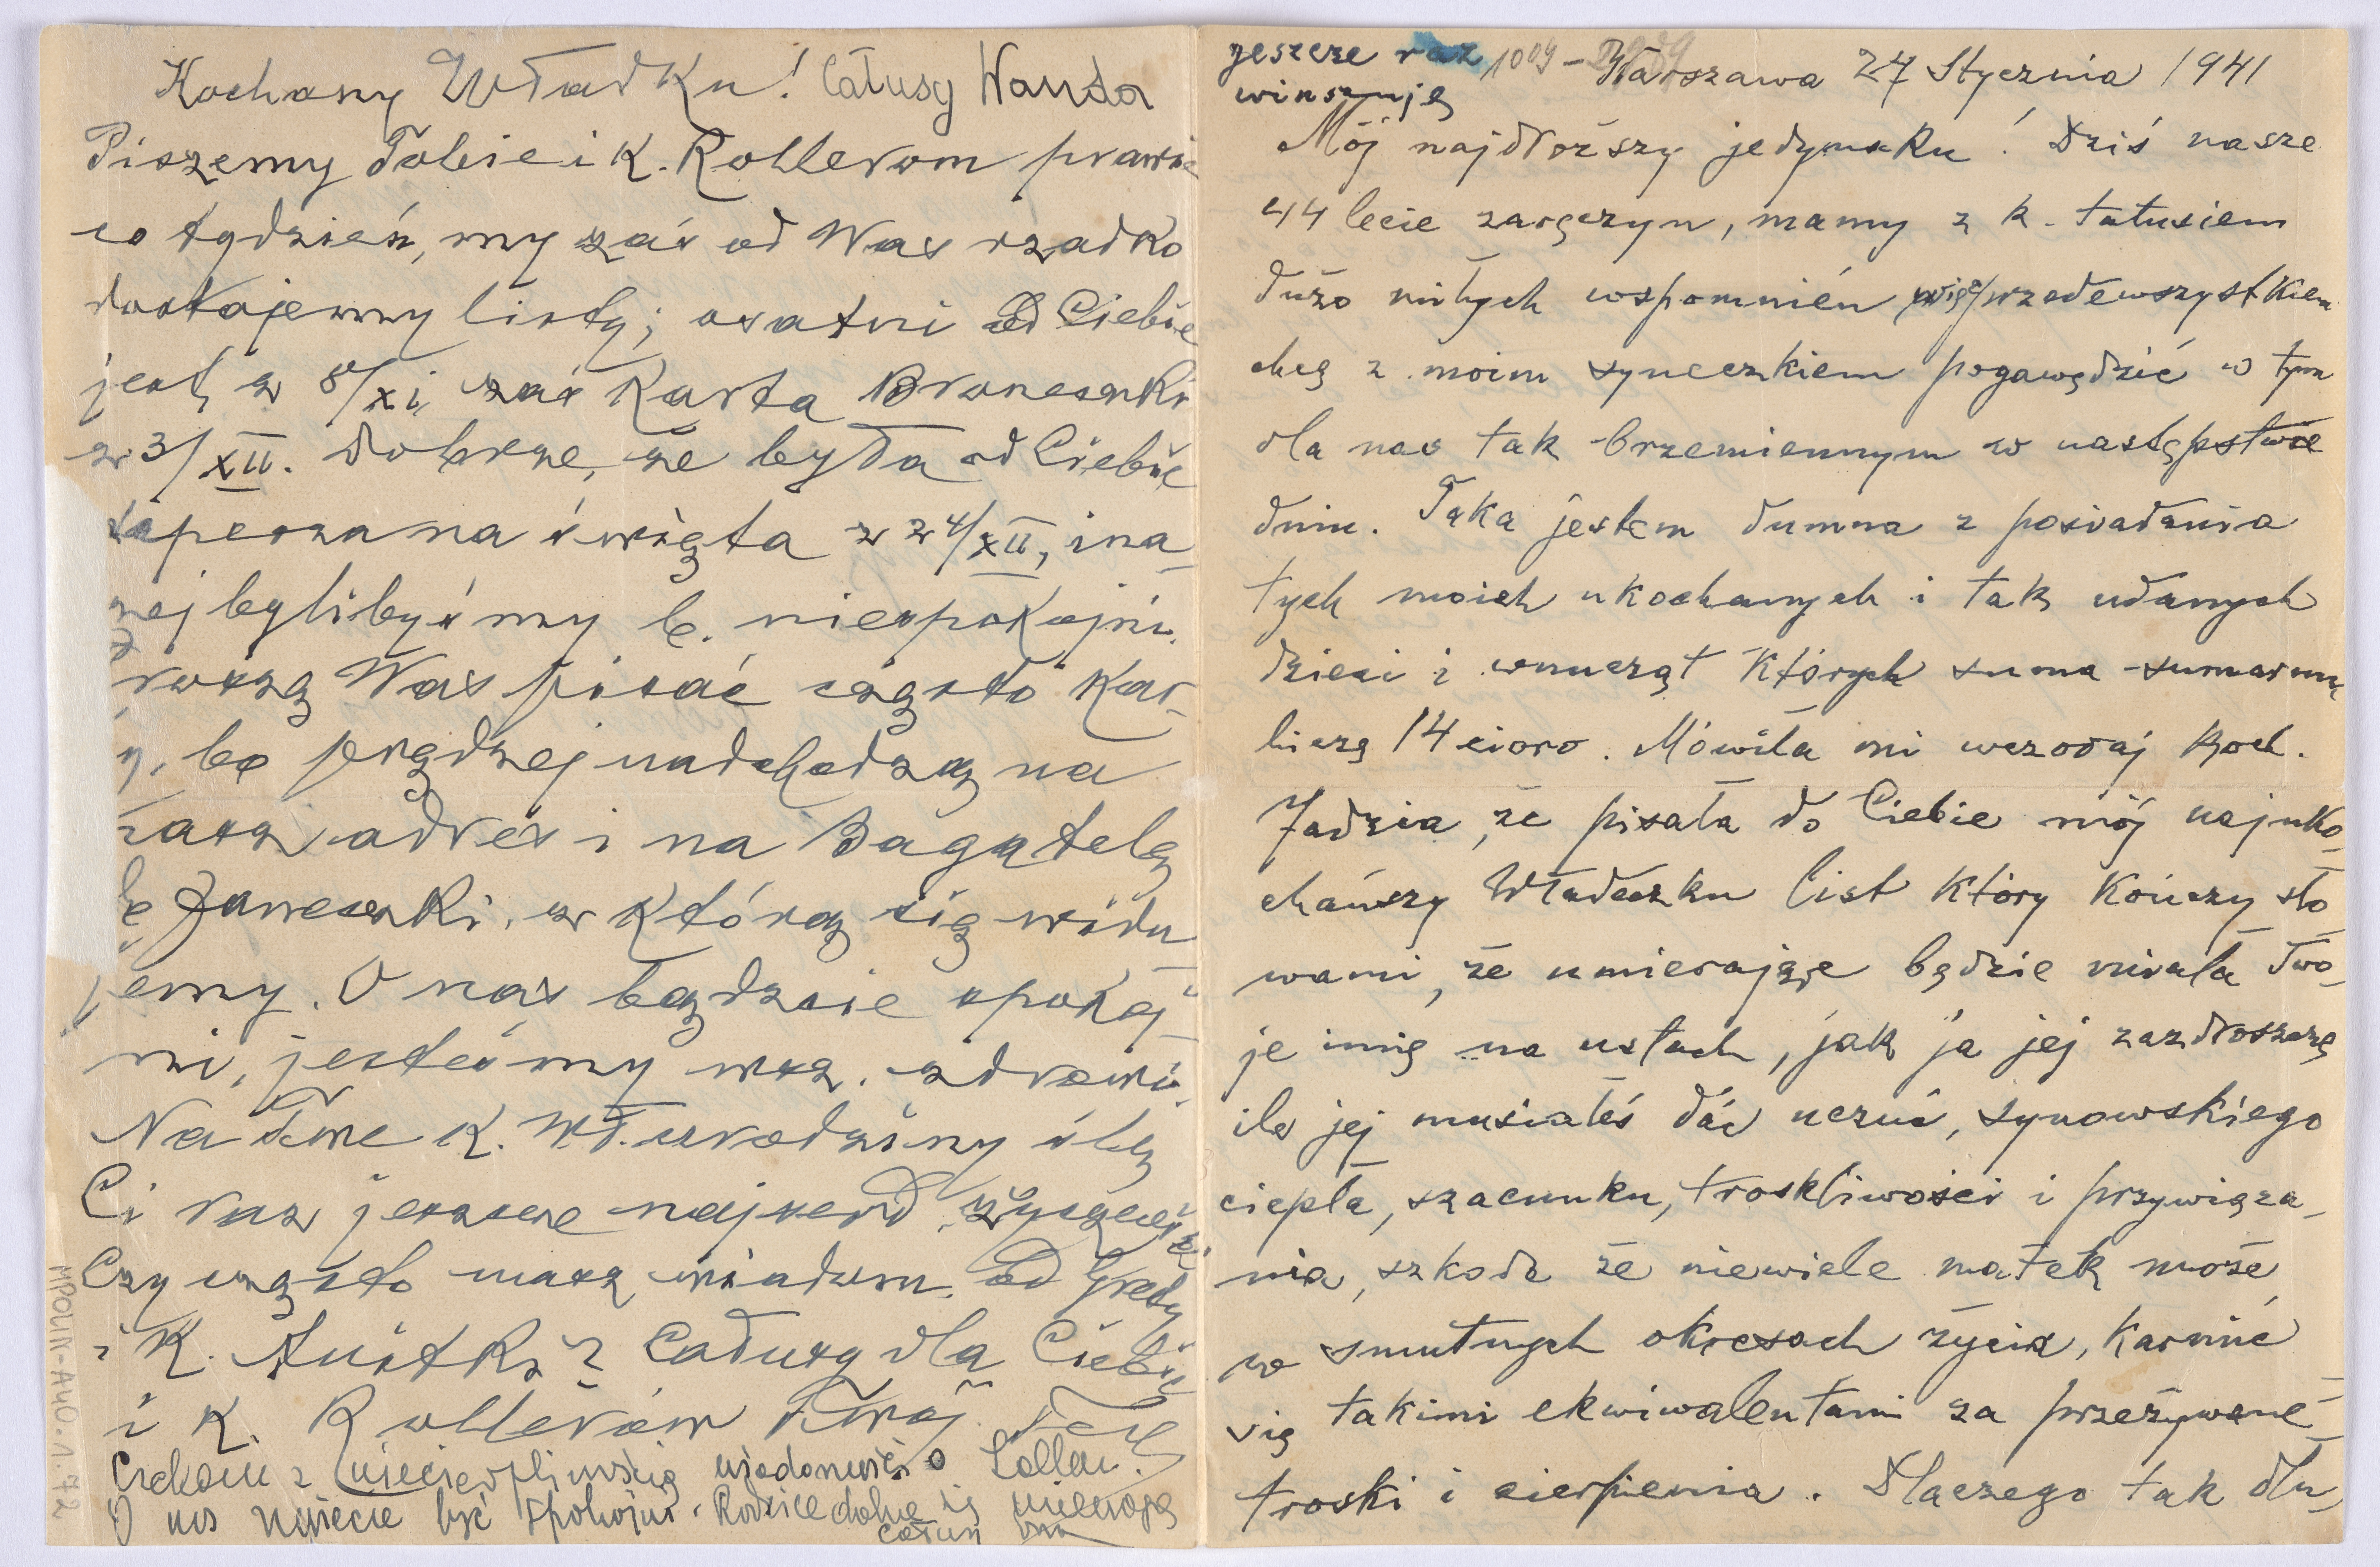 Kochany Władku! Całusy Wanda
Piszemy Tobie i K. Rollerom prawie
co tydzień, my zaś od Was rzadko
dostajemy listy; osatni od Ciebie
jest z 8/XI, zaś karta Broneczki
z 3/XII. Dobrze, że była od Ciebie
depesza na święta z 24/XII, ina-
zej bylibyśmy b. niespokojni.
roszę Was pisać często kar-
y, bo prędzej nadchodzą na
nasz adres i na Bagatelę
Janeczki, z którą się widu
jemy. O nas bądźcie spokoj-
ni, jesteśmy wsz. zdrowi.
Na Twe K. Wł. urodziny ślę
Ci raz jeszcze najserd. życzenia
Czy często masz wiadom. od Grety
i K. Anitki? Całusy dla Ciebie
i K. Rollerów Twój
Czekam z niecierpliwością wiadomości o Lollku.
O nas możecie być spokojni. Rodzice dobrze się miewają
całuję
MPOLIN-A40.1.72
jeszcze raz 1009 - Warszawa 27 Stycznia 1941
winszuję
Mój najdroższy jedynaku! Dziś nasze
44 lecie zaręczyn, mamy z k. tatusiem
dużo miłych wspomnień, więc przedewszystkiem
chcę z moim syneczkiem pogawędzić w tym
dla nas tak brzemiennym w następstwie
dniu. Taka jestem dumna z posiadania
tych moich ukochanych i tak udanych
dzieci i wnucząt których suma-sumarum
liczę 14 cioro. Mówiła mi wczoraj koch.
Jadzia, że pisała do Ciebie mój najuko-
chańszy Władeczku list który kończy sło
wami, że umierając będzie miała Two-
je imię na ustach, jak ja jej zazdroszczę
ile jej musiałeś dać uczuć, synowskiego
ciepła, szacunku, troskliwości i przywiąza-
nia, szkoda że niewiele matek może
w smutnych okresach życia, karmić
się takimi ekwiwalentami za przeżywane
troski i cierpienia. Dlaczego tak dłu-